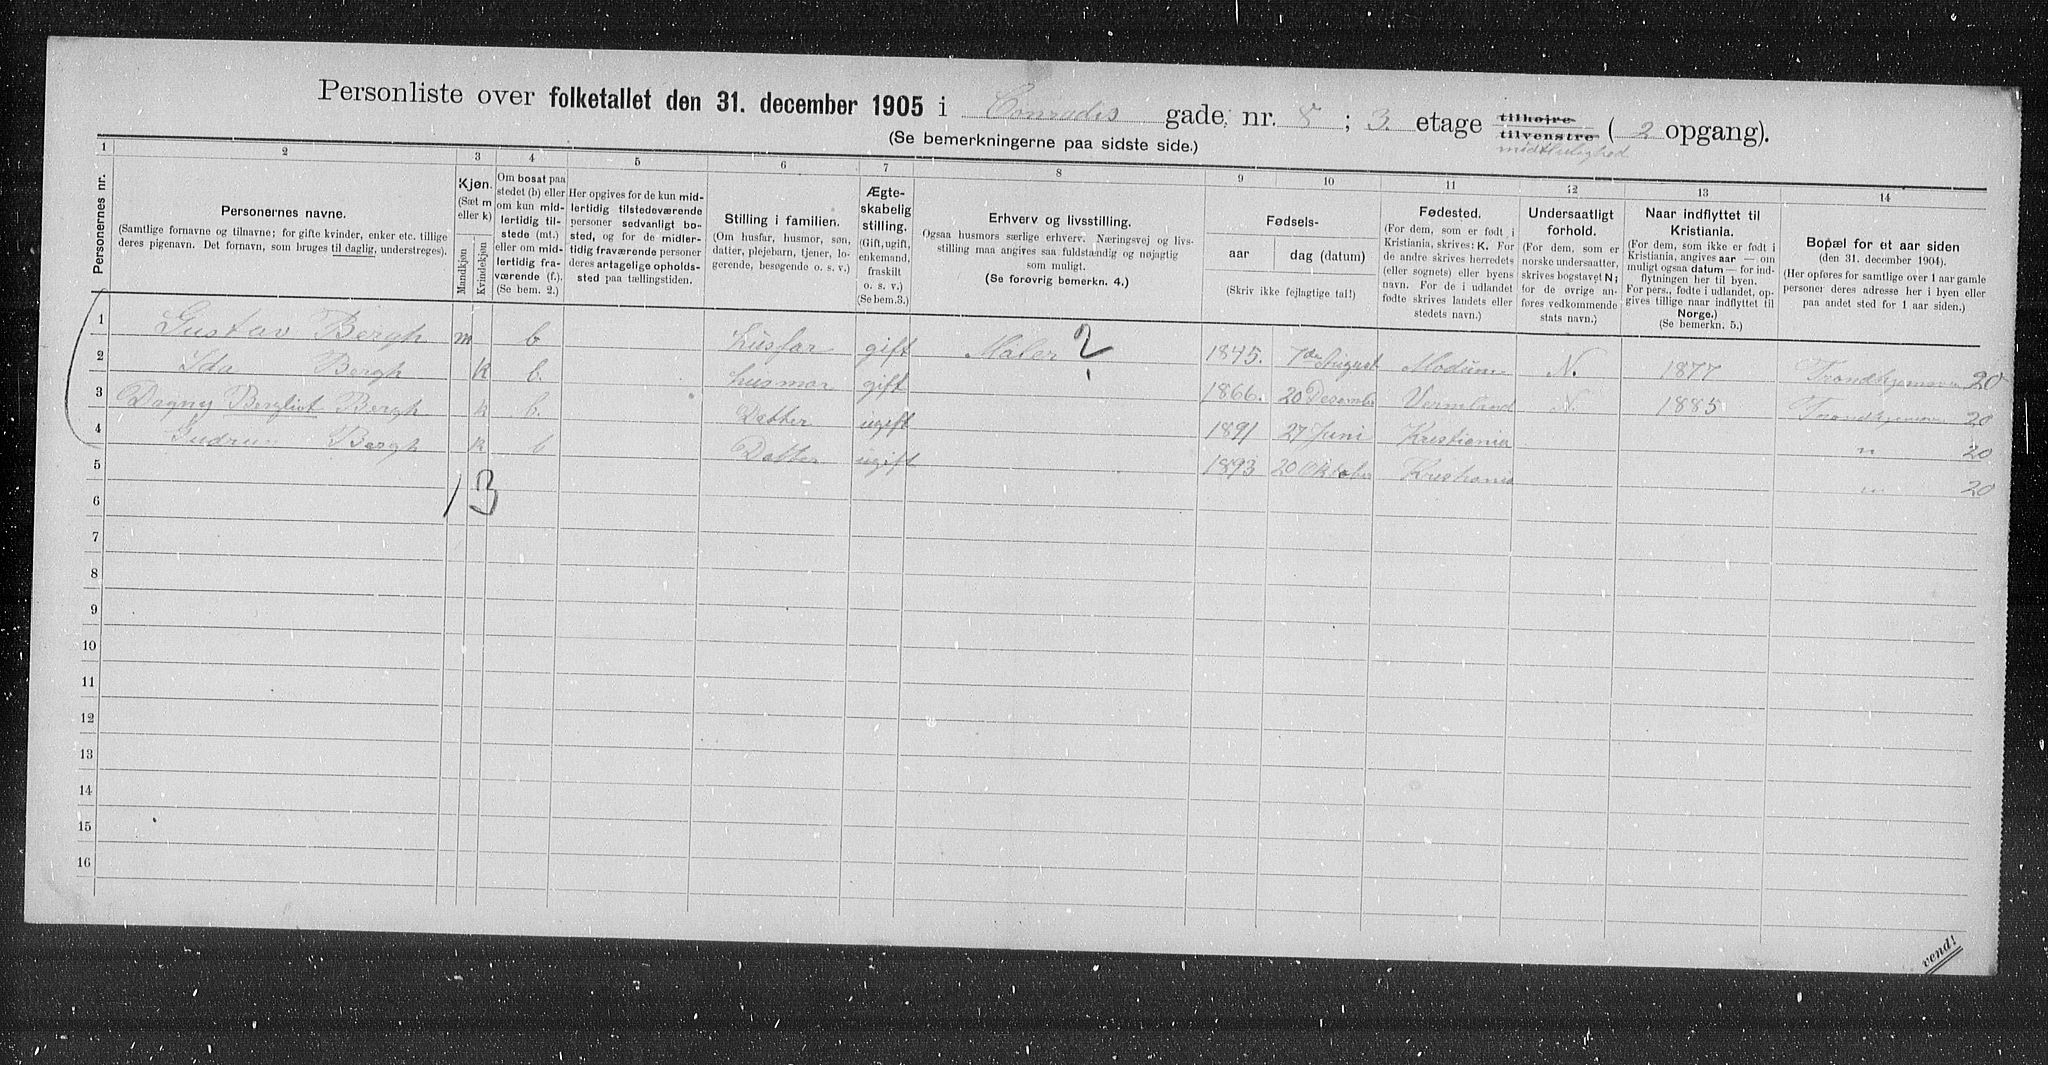 Personliste over folketallet den 31. december 1905 i Conradis gade nr. 8 ; 3. etage tilhøjre tilvenstre midtleilighed ( 2 opgang).
(Se bemerkningerne paa sidste side.)
1 2 3 4 5 6 7 8 9 10 11 12 13 14
Personernes nr.
Personernes navne.
(Samtlige fornavne og tilnavne; for gifte kvinder, enker etc. tillige
deres pigenavn. Det fornavn, som bruges til daglig, understreges).
Kjøn.
(Sæt m
eller k)
Mandkjøn
Kvindekjøn
Om bosat paa
stedet (b) eller
om kun mid-
lertidig til-
stede (mt.)
eller om mid-
lertidig fra-
værende (f.).
(Se bem. 2.)
Her opgives for de kun mid-
lertidig tilstedeværende
personer sedvanligt bo-
sted, og for de midler-
tidig fraværende personer
deres antagelige opholds-
sted paa tællingstiden.
Stilling i familien.
(Om husfar, husmor, søn,
datter, plejebarn, tjener, lo-
gerende, besøgende o. s. v.)
Ægte-
skabelig
stilling.
(Gift, ugift,
enkemand,
fraskilt
o. s. v.)
(Se bem.3.)
Erhverv og livsstilling.
Ogsaa husmors særlige erhverv. Næringsvej og livs-
stilling maa angives saa fuldstændig og nøjagtig
som muligt.
(Se forøvrig bemerkn. 4.)
Fødsels-
aar dag (datum)
(Skriv ikke fejlagtige tal!)
Fødested.
(For dem, som er født i
Kristiania, skrives: K. For
de andre skrives herredets
(eller sognets) eller byens
navn. For de i udlandet
fødte skrives landets eller
stedets navn.)
Undersaatligt
forhold.
(For dem, som er
norske undersaatter,
skrives bogstavet N;
for de øvrige an-
føres vedkommende
stats navn.)
Naar indflyttet til
Kristiania.
(For dem, som ikke er født i
Kristiania, angives aar — om
muligt ogsaa datum — for ind-
flytningen her til byen.
For pers., fødte i udlandet, op-
gives tillige naar indflyttet til
Norge.)
(Se bemerkn. 5.)
Bopæl for et aar siden
(den 31. december 1904).
(Her opføres for samtlige over 1 aar gamle
personer deres adresse her i byen eller
paa andet sted for 1 aar siden.)
1 Gustav Bergh m b husfar gift Maler ? 1845. 7de August Modum N. 1877 20
2 Ida Bergh k b. husmor gift 1866. 20 Desember Vermland N. 1885 20
3 Dagny Bergliot Bergh k b. Datter ugift 1891 27 Juni Kristiania " 20
4 Gudrun Bergh k b Datter ugift 1893 20 Oktober Kristiania " 20
5
1 3
6
7
8
9
10
11
12
13
14
15
16
vend!